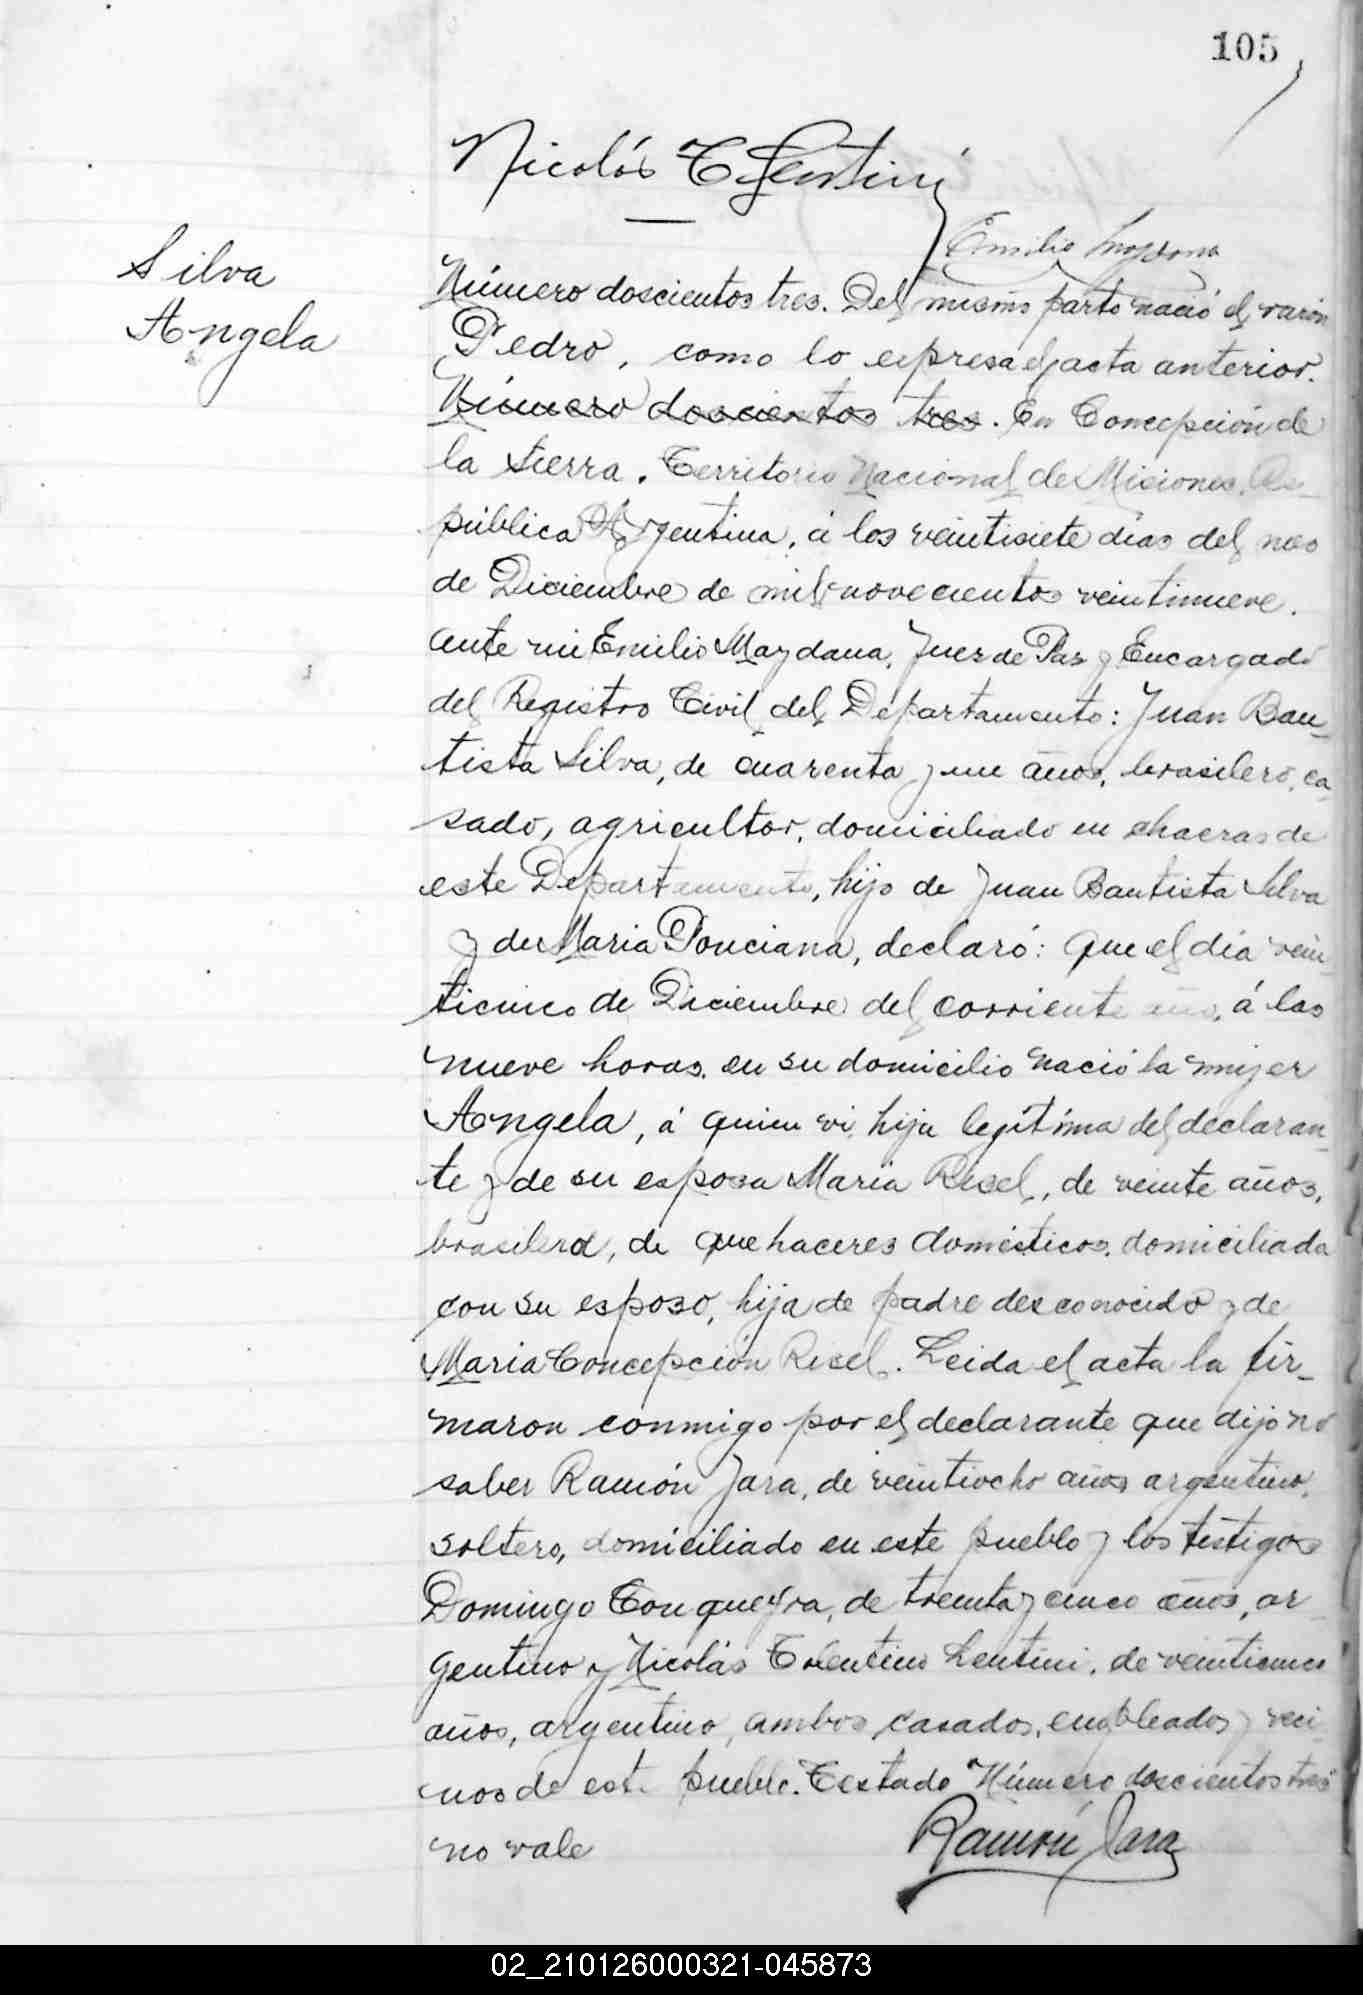 105
Nicolás T Lentini
Emilio Maydana
Silva
Angela
Número doscientos tres. Del mismo parto nació el varón
Pedro, como lo expresa el acta anterior.
Número doscientos tres. En Concepción de
la Sierra. Territorio Nacional de Misiones, Re-
pública Argentina, á los veintisiete dias del mes
de Diciembre de mil novecientos veintinueve.
ante mi Emilio Maydana, Juez de Paz y Encargado
del Registro Civil del Departamento: Juan Bau-
tista Silva, de cuarenta y un años, brasilero, ca-
sado, agricultor, domiciliado en chacras de
este Departamento, hijo de Juan Bautista Silva
y de Maria Ponciana, declaró: Que el dia vein-
ticinco de Diciembre del corriente año, á las
nueve horas, en su domicilio nació la mujer
Angela, á quien vi, hija legítima del declaran-
te y de su esposa Maria Risel, de veinte años,
brasilera, de quehaceres domésticos, domiciliada
con su esposo, hija de padre desconocido y de
Maria Concepción Risel. Leida el acta la fir-
maron conmigo por el declarante que dijo no
saber Ramón Jara, de veintiocho años argentino,
soltero, domiciliado en este pueblo y los testigos
Domingo Conqueyra, de treinta y cinco años, ar-
gentino y Nicolás Tolentino Lentini, de veinticinco
años, argentino, ambos casados, empleados y veci-
nos de este pueblo. Testado "Número doscientos tres"
no vale
Ramón Jara
02_210126000321-045873